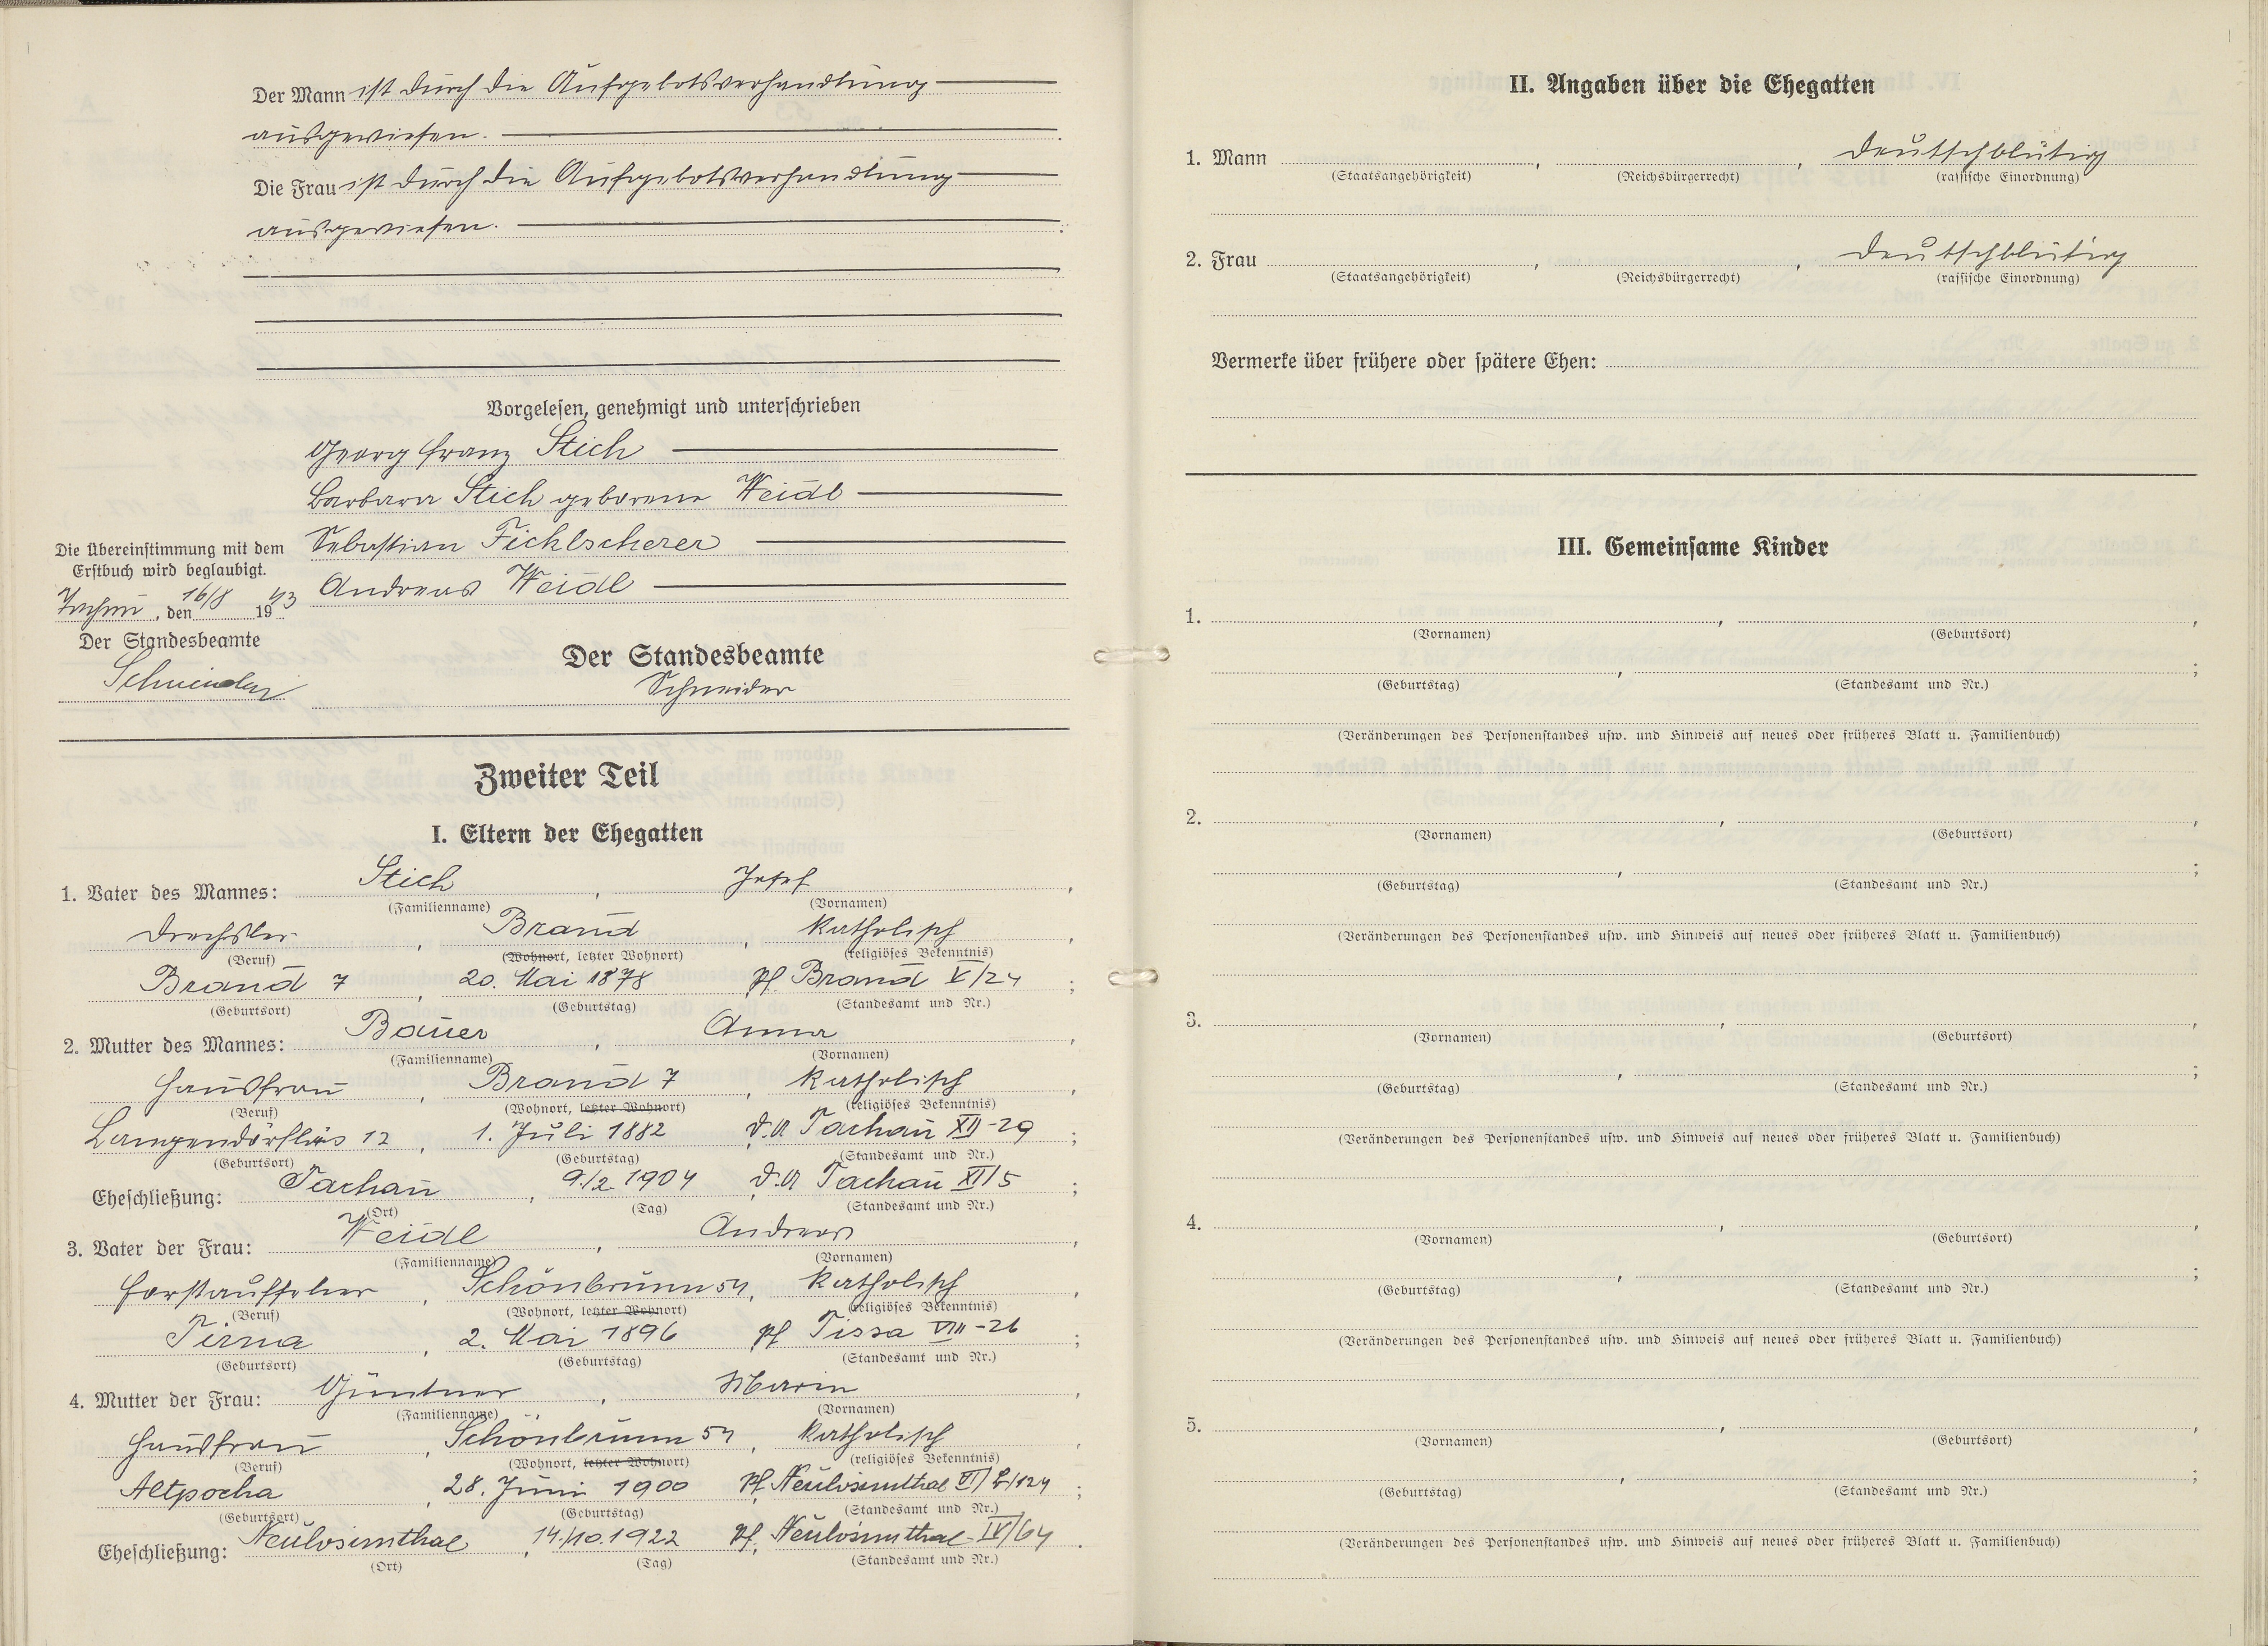 Der Mann ist durch die Aufgebotsverhandlung
ausgewiesen.
Die Frau ist durch die Aufgebotsverhandlung
ausgewiesen.
Vorgelesen, genehmigt und unterschrieben
Georg Franz Stich
Barbara Stich geborene Weidl
Sebastian Ficklscherer
Andreas Weidl
Die Übereinstimmung mit dem
Erstbuch wird beglaubigt.
Tachau, den 16/8 1943
Der Standesbeamte
Schneider
Der Standesbeamte
Schneider
Zweiter Teil
I. Eltern der Ehegatten
1. Vater des Mannes: Stich, Josef,
(Familienname) (Vornamen)
Drechsler, Brand, katholisch,
(Beruf) (Wohnort, letzter Wohnort) (religiöses Bekenntnis)
Brand 7, 20. Mai 1878 Pf. Brand V/24;
(Geburtsort) (Geburtstag) (Standesamt und Nr.)
2. Mutter des Mannes: Bauer, Anna,
(Familienname) (Vornamen)
Hausfrau, Brand 7, katholisch,
(Beruf) (Wohnort, letzter Wohnort) (religiöses Bekenntnis)
Langendörflas 12, 1. Juli 1882, D.A Tachau XII-29;
(Geburtsort) (Geburtstag) (Standesamt und Nr.)
Eheschließung: Tachau, 9./2. 1904, D.A Tachau XI/5;
(Ort) (Tag) (Standesamt und Nr.)
3. Vater der Frau: Weidl, Andreas,
(Familienname) (Vornamen)
Forstaufseher, Schönbrunn 54, katholisch,
(Beruf) (Wohnort, letzter Wohnort) (religiöses Bekenntnis)
Tirna, 2. Mai 1896 Pf Tissa VIII-26;
(Geburtsort) (Geburtstag) (Standesamt und Nr.)
4. Mutter der Frau: Güntner, Marie,
(Familienname) (Vornamen)
Hausfrau, Schönbrunn 54, katholisch,
(Beruf) (Wohnort, letzter Wohnort) (religiöses Bekenntnis)
Altpocha, 28. Juni 1900 Pf. Neulosimthal VI/124;
(Geburtsort) (Geburtstag) (Standesamt und Nr.)
Eheschließung: Neulosimthal, 14./10.1922 Pf. Neulosimthal-IV/64.
(Ort) (Tag) (Standesamt und Nr.)
II. Angaben über die Ehegatten
1. Mann , , deutschblütig
(Staatsangehörigkeit) (Reichsbürgerrecht) (rassische Einordnung)
2. Frau , , deutschblütig
(Staatsangehörigkeit) (Reichsbürgerrecht) (rassische Einordnung)
Vermerke über frühere oder spätere Ehen:
III. Gemeinsame Kinder
1. , ,
(Vornamen) (Geburtsort)
, ;
(Geburtstag) (Standesamt und Nr.)
(Veränderungen des Personenstandes usw. und Hinweis auf neues oder früheres Blatt u. Familienbuch)
2. , ,
(Vornamen) (Geburtsort)
, ;
(Geburtstag) (Standesamt und Nr.)
(Veränderungen des Personenstandes usw. und Hinweis auf neues oder früheres Blatt u. Familienbuch)
3. , ,
(Vornamen) (Geburtsort)
, ;
(Geburtstag) (Standesamt und Nr.)
(Veränderungen des Personenstandes usw. und Hinweis auf neues oder früheres Blatt u. Familienbuch)
4. , ,
(Vornamen) (Geburtsort)
, ;
(Geburtstag) (Standesamt und Nr.)
(Veränderungen des Personenstandes usw. und Hinweis auf neues oder früheres Blatt u. Familienbuch)
5. , ,
(Vornamen) (Geburtsort)
, ;
(Geburtstag) (Standesamt und Nr.)
(Veränderungen des Personenstandes usw. und Hinweis auf neues oder früheres Blatt u. Familienbuch)